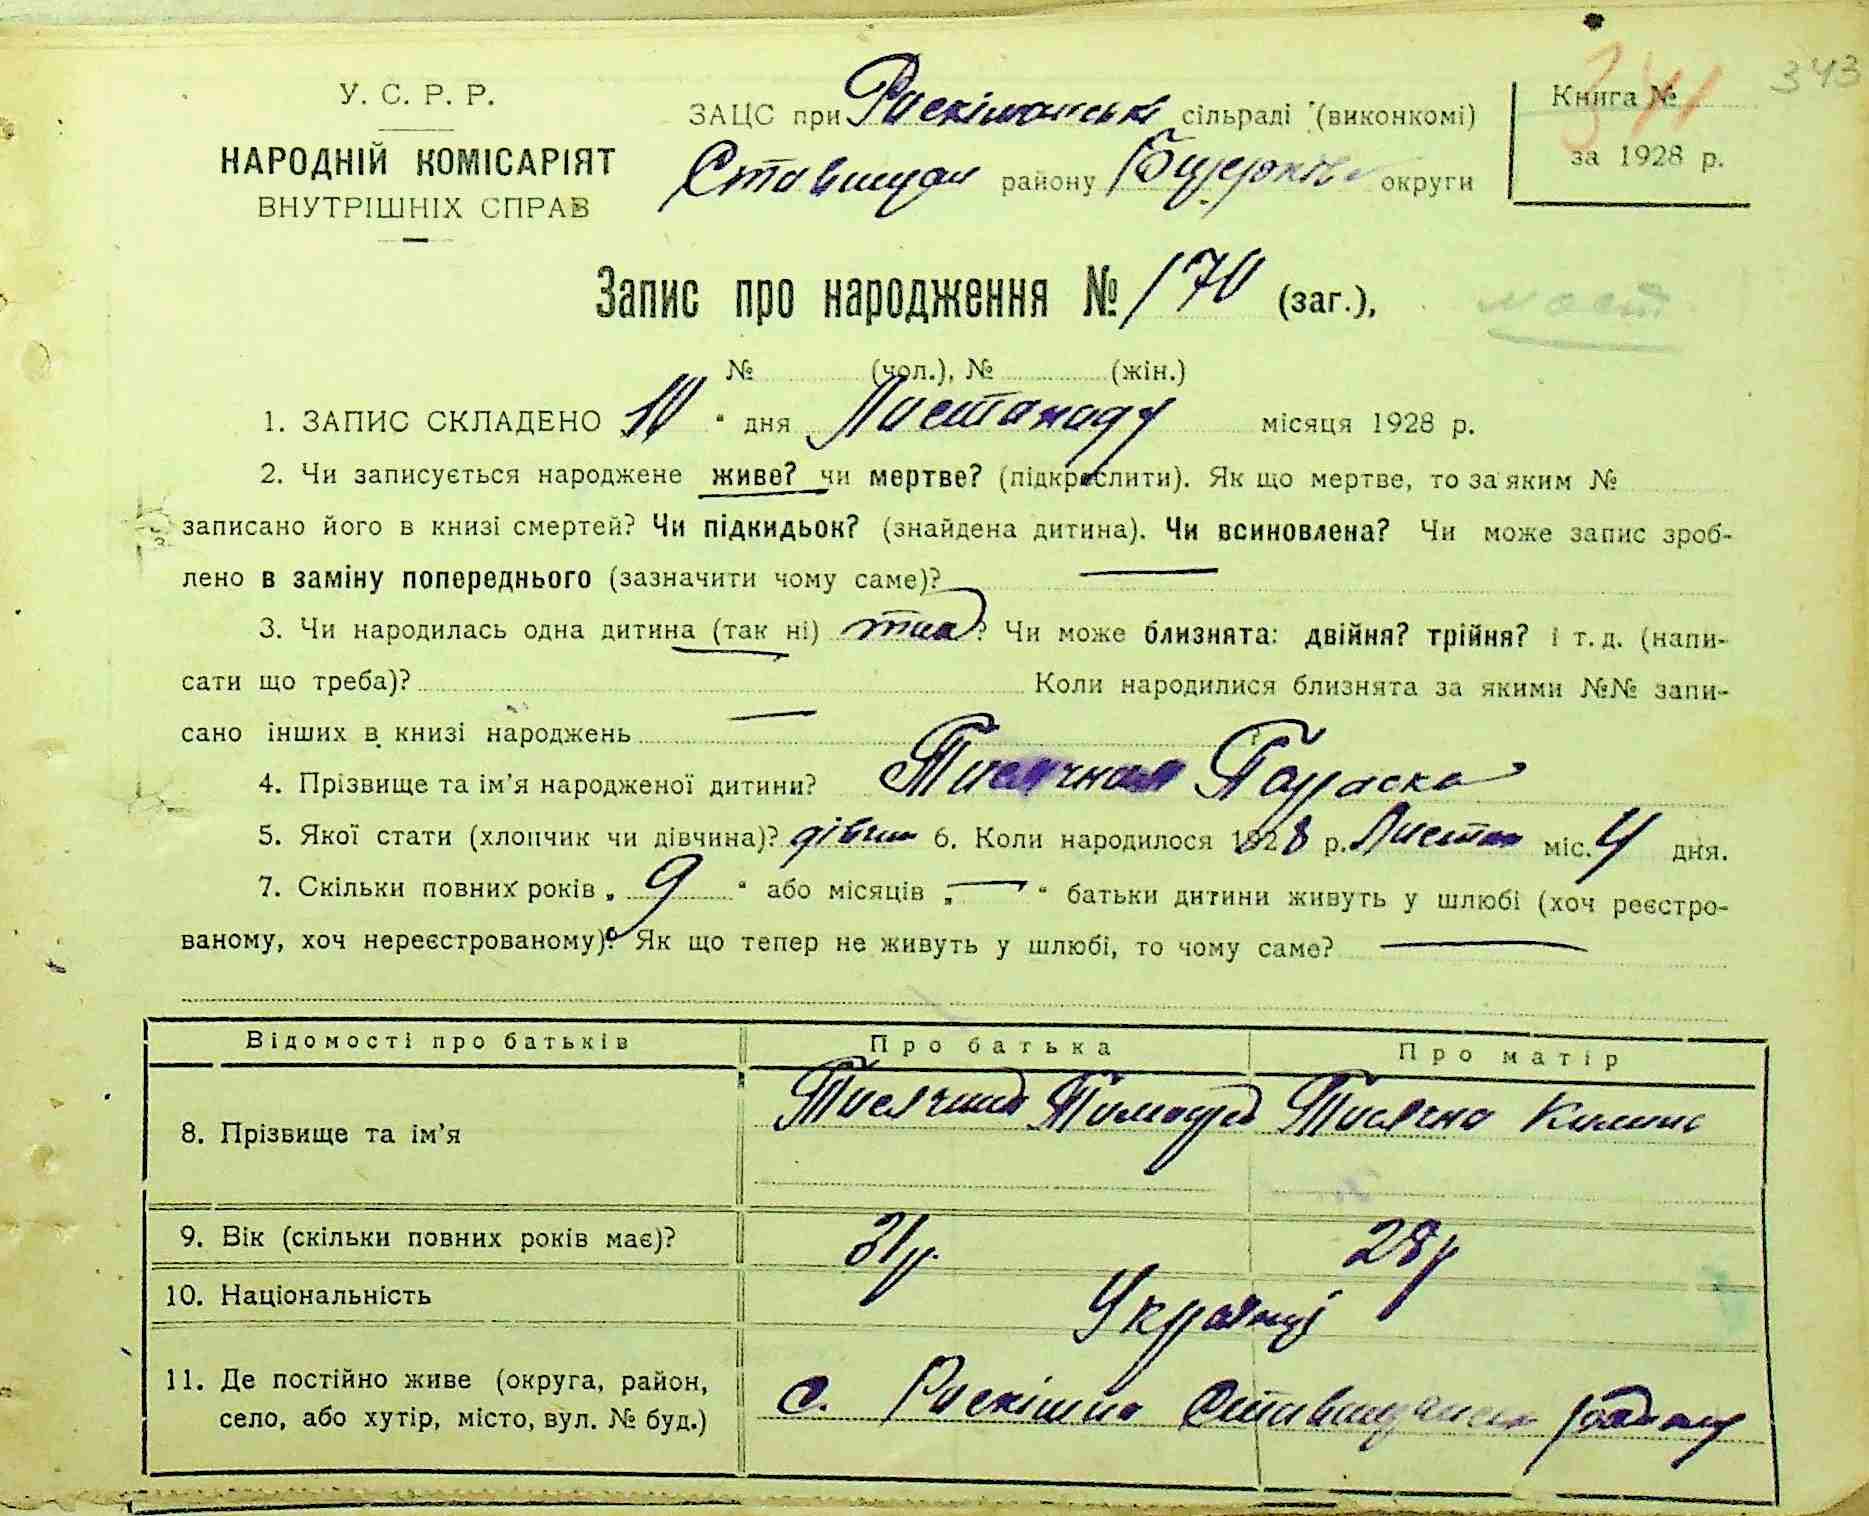 343
341
У. С. Р. Р.
НАРОДНІЙ КОМІСАРІЯТ
ВНУТРІШНІХ СПРАВ
ЗАЦС при Роскішанські сільраді (виконкомі)
Ставищан району Білоцерків округи
Книга №
за 1928 р.
Запис про народження № 170 (заг.),
№ (чол.), № (жін.)
1. ЗАПИС СКЛАДЕНО 10 " дня Листопаду місяця 1928 р.
2. Чи записується народжене живе? чи мертве? (підкреслити). Як що мертве, то за яким №
записано його в книзі смертей? Чи підкидьок? (знайдена дитина). Чи всиновлена? Чи може запис зроб-
лено в заміну попереднього (зазначити чому саме)? —
3. Чи народилась одна дитина (так ні) так? Чи може близнята: двійня? трійня? і т. д. (напи-
сати що треба)? Коли народилися близнята за якими №№ запи-
сано інших в книзі народжень — ?
4. Прізвище та ім'я народженої дитини? Тисячная Параска
5. Якої стати (хлопчик чи дівчина)? дівчин 6. Коли народилося 1928 р. Листоп міс. 4 дня.
7. Скільки повних років „ 9 " або місяців „ — " батьки дитини живуть у шлюбі (хоч реєстро-
ваному, хоч нереєстрованому)? Як що тепер не живуть у шлюбі, то чому саме? —
Відомості про батьків Про батька Про матір
8. Прізвище та ім'я Тисячний Тимофій Тисячна
9. Вік (скільки повних років має)? 31 р. 28 р
10. Національність Українці
11. Де постійно живе (округа, район, с. Роскішна Ставищанськ району
село, або хутір, місто, вул. № буд.)